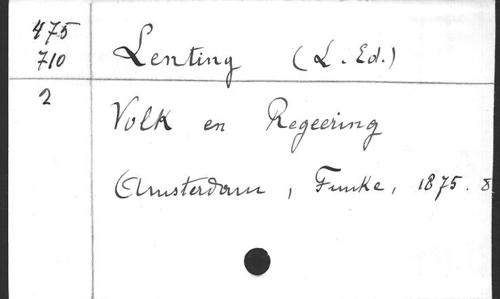 475
710
Lenting (L. Ed.)
2
Volk en Regeering
Amsterdam, Funke, 1875. 8